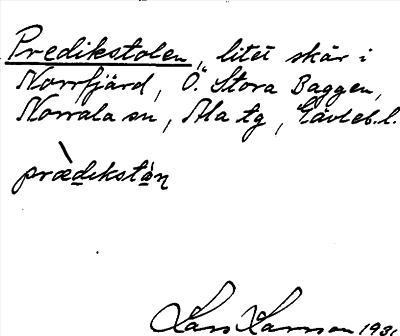 Predikstolen, litet skär i
Norrfjärd, Ö. Stora Baggen,
Norrala sn, Ala tg, Gävleb. l.
prædikstàn
Lars Larsson 1931